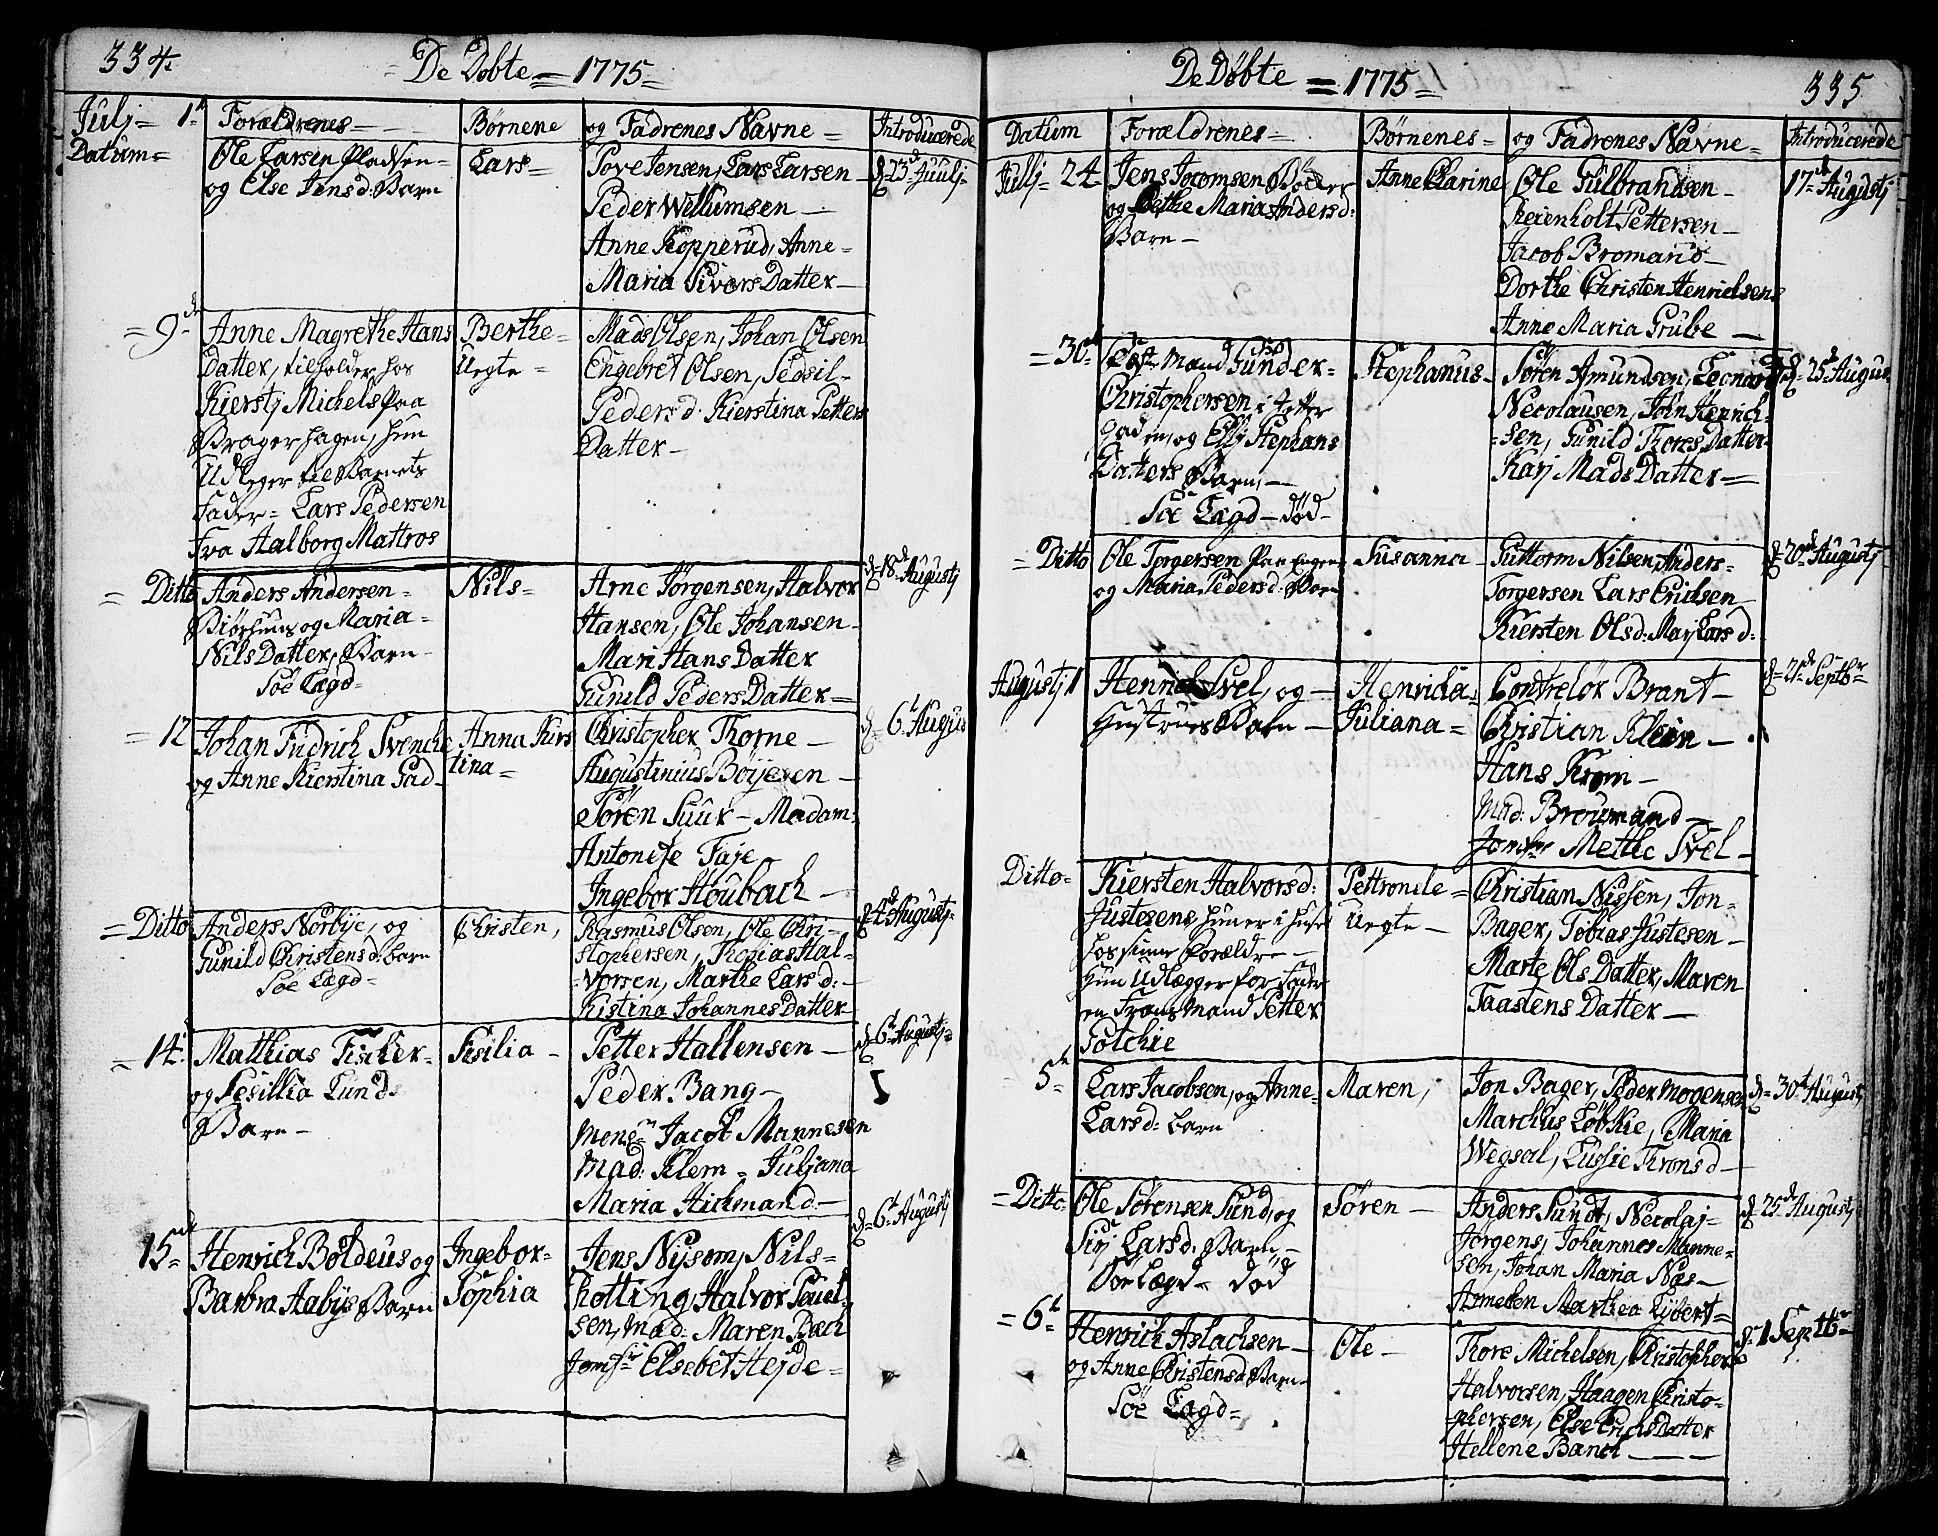 334.
De Døbte = 1775 =
Julj = 1.
Datum =
Forældrenes
Børnene
og Fadrenes Navne =
Introducerede
Ole Larsen Pladsen -
og Else Jensd: Barn
Lars =
Tove Jensen, Lars Larsen -
Peder Willumsen -
Anne Kopperud, Anne =
Maria Sivers Datter -
d= 23 Juulj
= 9.
Anne Magrethe Hans
Datter, tilholder hos
Kierstj Michels Paa
Bragerhagen, hun
Udleger til Barnets
Fader = Lars Pedersen
Fra Aalborg Mattros
Berthe =
Uegte =
Mads Olsen, Johan Olsen
Engebret Olsen, Sedsil =
Pedersd. Kierstina Petters
Datter -
= Ditto
Anders Andersen =
og Maria =
Nils Datter, Barn -
Søe Lægd =
Nils =
Arne Jørgensen, Halvor
Hansen, Ole Johansen -
Mari Hans Datter
Gunild Peders Datter =
d= 18 Augustj
= 12
Johan Fridrich Svencke
og Anne Kierstina Gad -
Anna Kirs
tina =
Christopher Thorne -
Augustinius Boijesen -
Søren Suur - Madam:
Antonette Faje
Ingebor Houbach -
d= 6 August
= Ditto
Anders Norbÿe, og
Gunild Christensd: barn
Søe Lægd =
Christen,
Rasmus Olsen, Ole Chri-
stophersen, Thosias Hal =
= vorsen, Marthe Larsd: -
Kistina Johannes Datter
d= Augustj =
= 14
Mathias Fischer =
og Sesillia Lund
Barn -
Sisilia -
Petter Hallensen -
Peder Bang -
Mons:r Jacob Mannesen
Mad: Klem = Juljana
Maria Hichmand -
d= 6 Augustj =
15 =
Henrich Boldeus og
Barbra Aabÿe Barn
Ingebor =
Sophia
Jens Nijsom, Nils =
Rotting, Halvor Poül =
sen, Mad: Maren Bech
Jomfr Elsebet Hejde =
d= 6 Augustj
De Døbte = 1775 =
335
Datum
Forældrenes =
Børnenes =
og Fadrenes Navne =
Introducerede
Julj = 24
Jens Jocomsen
og Dethe Maria Andersd:
Barn -
Anne Clarine
Ole Gulbrandsen -
Reienholt Pettersen -
Jacob Bromand -
Dorthe Christen Henrichsens
Anne Maria Grube -
17 Augustj
= 30
mand Gunder =
Christophersen i
gaden, og Elj Stephans
Datters Barn, -
Søe Lægd - død -
Stephanus -
Søren Amundsen, Leonard
Necolausen, John Henrich =
= sen, Gunild Thores Datter -
Karj Mads Datter =
d= 25 August
= Ditto
Ole Torgersen Paa Engen
og Maria Pedersd: Barn
Susanna -
Guttorm Nilsen, Anders =
Torgersen Lars Erichsen
Kiersten Olsd: Marj Larsd:
d= 20 Augustj
Augustj 1
Henrich Svel, og -
Hustrues Barn -
Henricha =
Juliana =
Contreløx Brant -
Christian Klein -
Hans Krom -
Mad: Broumand -
Jomfr Mette Svel -
d= 21 Septbr
Ditto =
Kiersten Halvorsd:
Justesens hun er i huse
hos sinne Forældre -
hun Udlægger for Fader
en Frans mand Petter
Solchie
Pettronele =
Uegte -
Christian Nissen, Jon =
Bager, Tobias Justesen -
Marte Ols Datter, Maren
Taastens Datter -
5
Lars Jacobsen, og Anne =
Larsd: barn
Maren,
Jon Bager, Peder Mogensen
Marchus Løbkie, Maria
Wegsal, Lussie Thronsd -
d= 30 Augustj
= Ditto
Ole Sørensen Sund, og
Sirj Larsd: Barn, -
Søe Lægd - død
Søren -
Anders Sundt, Necolaj =
Jørgens, Johannes Manne =
sen, Johan Maria Næs -
Marthea Lÿbert =
d= 25 Augustj
= 6
Henrich Aslachsen -
og Anne Christensd: Barn -
Søe Lægd =
Ole -
Thore Michelsen, Christopher
Halvorsen, Haagen Christo =
= phersen, Else Erichs Datter
Hellene Banch -
d= 1 Septbr